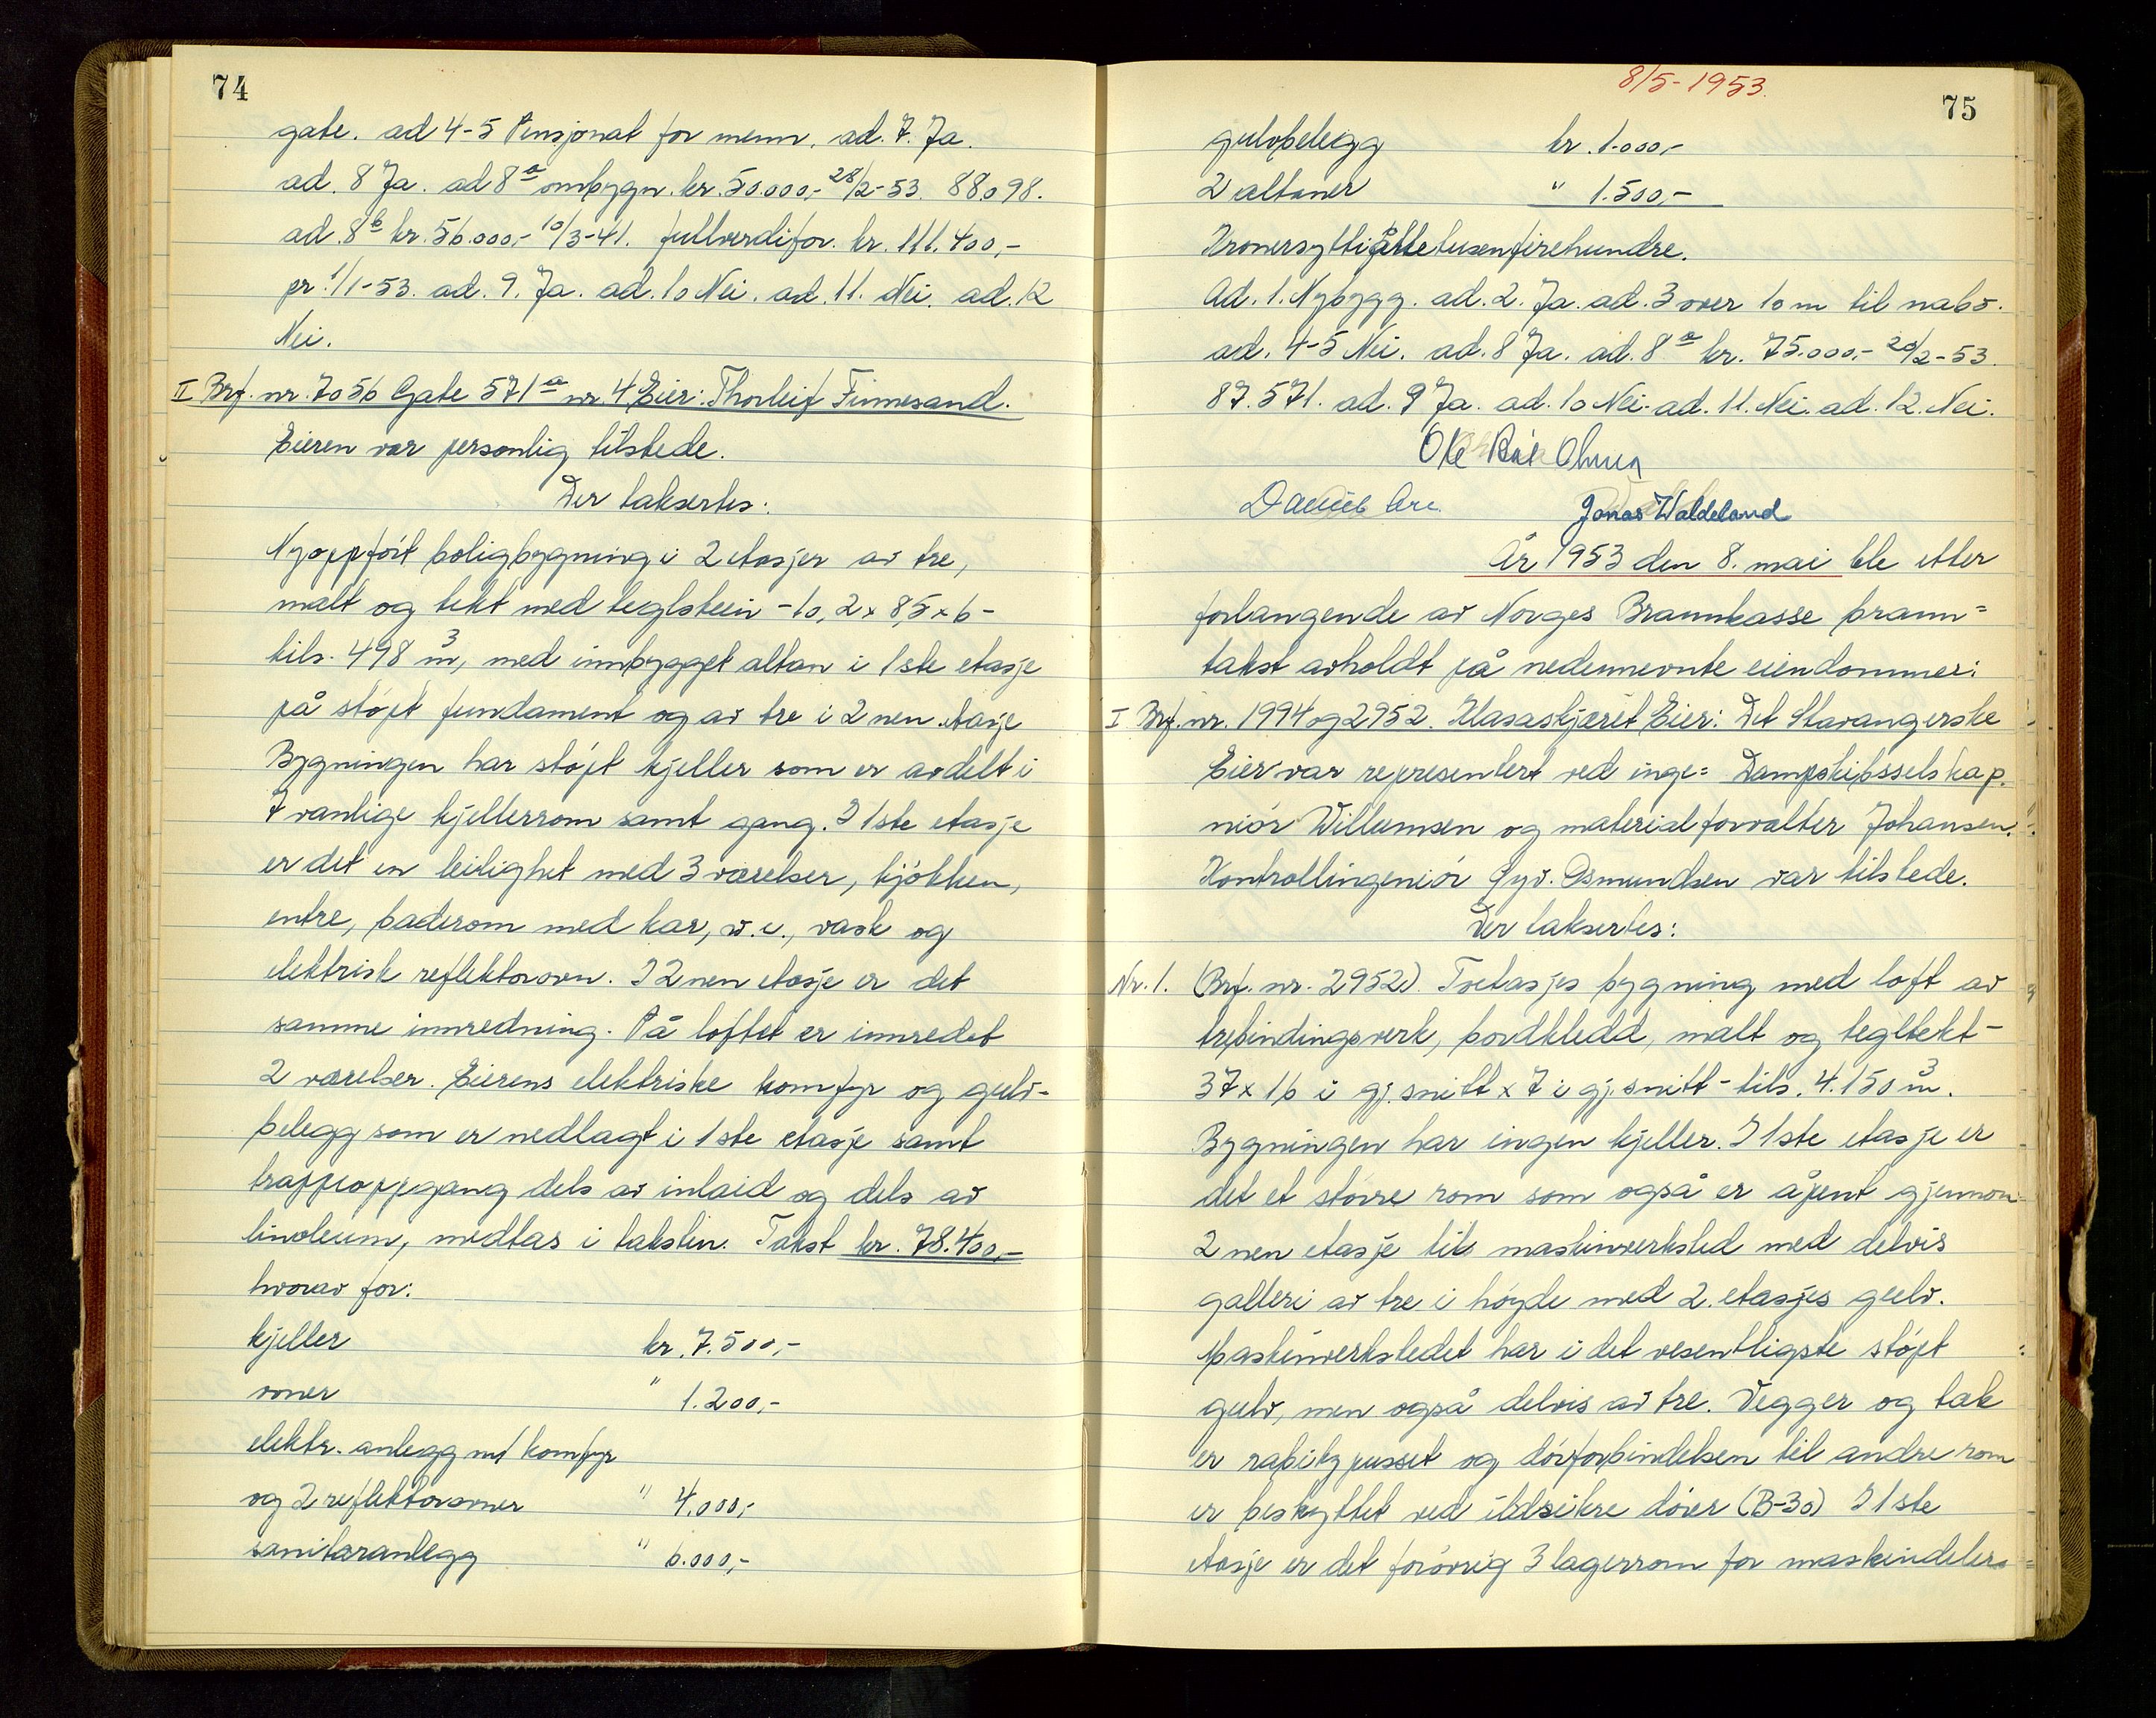 74
gate. ad 4-5 Pensjonat for menn. ad. 7. Ja.
ad. 8 Ja. ad 8a ombygn. kr. 50.000,- 28/2-53. 88098.
ad 8b kr. 56.000,- 10/3-41. fullverdifor. kr. 111.400,-
pr. 1/1-53. ad. 9. Ja. ad. 10 Nei. ad. 11. Nei. ad. 12
Nei.
II Brf. nr. 7056 Gate 571a nr. 4 Eier: Thorleif Finnesand.
Eieren var personlig tilstede.
Der taksertes:
Nyoppført boligbygning i 2 etasjer av tre,
malt og tekt med teglstein - 10,2 x 8,5 x 6 -
tils. 498 m3, med innbygget altan i 1ste etasje
på støpt fundament og av tre i 2nen etasje
Bygningen har støpt kjeller som er avdelt i
7 vanlige kjellerrom samt gang. I 1ste etasje
er det en leilighet med 3 værelser, kjøkken,
entre, baderom med kar, w.c., vask og
elektrisk reflektorovn. I 2nen etasje er det
samme innredning. På loftet er innredet
2 værelser. Eierens elektriske komfyr og gulv-
belegg som er nedlagt i 1ste etasje samt
trappeoppgang dels av inlaid og dels av
linoleum, medtas i taksten. Takst kr. 78.400,-
hvorav for:
kjeller kr. 7.500,-
ovner " 1.200,-
elektr. anlegg m/ komfyr
og 2 reflektorovner " 4.000,-
sanitæranlegg " 6.000,-
8/5-1953.
75
gulvbelegg kr. 1.000,-
2 altaner " 1.500,-
Kronersyttiåttetusenfirehundre.
Ad. 1. Nybygg. ad. 2. Ja. ad. 3 over 10 m til nabo.
ad. 4-5 Nei. ad. 8 Ja. ad. 8a kr. 75.000,- 20/2-53.
87.571. ad. 9 Ja. ad. 10 Nei. ad. 11. Nei. ad. 12. Nei.
Ole
Jonas Waldeland
År 1953 den 8. mai ble etter
forlangende av Norges Brannkasse brann=
takst avholdt på nedennevnte eiendommer:
I Brf. nr. 1994 og 2952. Klasaskjæret Eier: Det Stavangerske
Eier var representert ved inge= Dampskibsselskap.
niør Willumsen og materialforvalter Johansen.
Kontrollingeniør Gyv. Osmundsen var tilstede.
Der taksertes:
Nr. 1. (Brf. nr. 2952). Toetasjes bygning med loft av
trebindingsverk, bordkledd, malt og tegltekt -
37 x 16 i gj. snitt x 7 i gj. snitt - tils. 4.150 m3.
Bygningen har ingen kjeller. I 1ste etasje er
det et større rom som også er åpent gjennom
2nen etasje til maskinverksted med delvis
galleri av tre i høyde med 2. etasjes gulv.
Maskinverkstedet har i det vesentligste støpt
gulv, men også delvis av tre. Vegger og tak
er rabitzpusset og dørforbindelsen til andre rom
er beskyttet ved ildsikre dører (B-30) I 1ste
etasje er det forøvrig 3 lagerrom for maskindeler